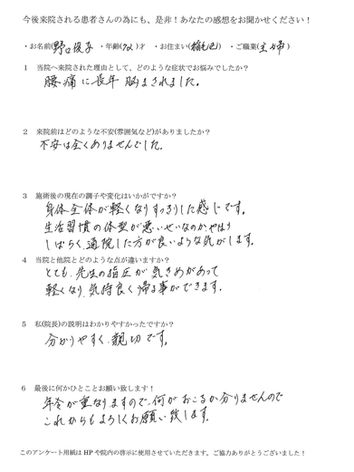 今後来院される患者さんの為にも、是非！あなたの感想をお聞かせください！
・お名前(野口優子)・年齢( )才 ・お住まい(稲毛区) ・ご職業(主婦)
1 当院へ来院された理由として、どのような症状でお悩みでしたか？
腰痛に長年 悩まされました。
2 来院前はどのような不安(雰囲気など)がありましたか？
不安は全くありませんでした。
3 施術後の現在の調子や変化はいかがですか？
身体全体が軽くなりすっきりした感じです。
生活習慣の体型が悪いせいなのかやはり
しばらく通院した方が良いような気がします。
4 当院と他院とどのような点が違いますか？
とても、先生の指圧が気きめがあって
軽くなり、気持良く帰る事ができます。
5 私(院長)の説明はわかりやすかったですか？
分かりやすく、親切です。
6 最後に何かひとことお願い致します！
年令が重なりますので、何がおこるか分りませんので
これからもよろしくお願い致します。
このアンケート用紙は HP や院内の啓示に使用させていただきます。ご協力ありがとうございました！